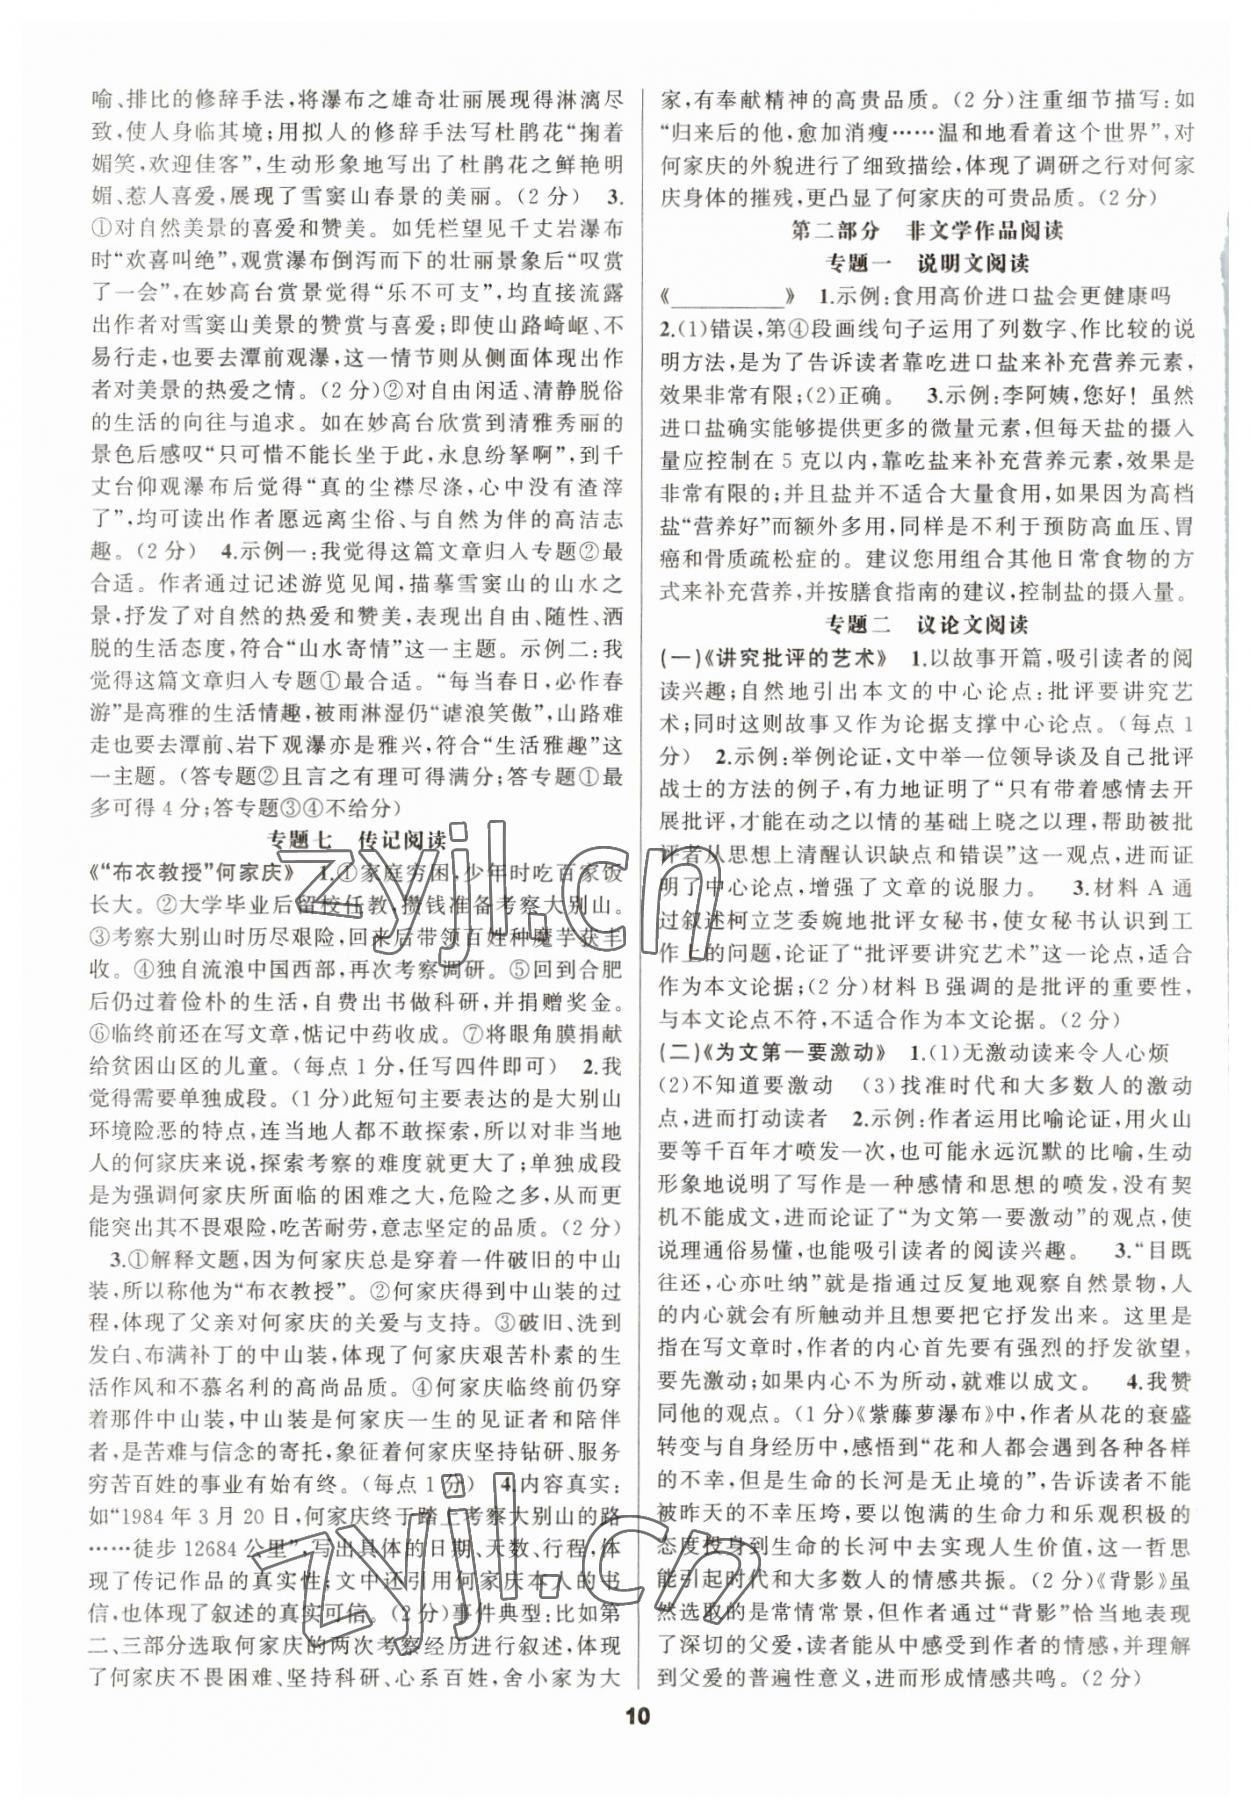 喻、排比的修辞手法，将瀑布之雄奇壮丽展现得淋漓尽
致，使人身临其境；用拟人的修辞手法写杜鹃花“掬着
媚笑，欢迎佳客”，生动形象地写出了杜鹃花之鲜艳明
媚、惹人喜爱，展现了雪窦山春景的美丽。（2 分）　3.
①对自然美景的喜爱和赞美。如凭栏望见千丈岩瀑布
时“欢喜叫绝”，观赏瀑布倒泻而下的壮丽景象后“叹赏
了一会”，在妙高台赏景觉得“乐不可支”，均直接流露
出作者对雪窦山美景的赞赏与喜爱；即使山路崎岖、不
易行走，也要去潭前观瀑，这一情节则从侧面体现出作
者对美景的热爱之情。（2 分）②对自由闲适、清静脱俗
的生活的向往与追求。如在妙高台欣赏到清雅秀丽的
景色后感叹“只可惜不能长坐于此，永息纷拏啊”，到千
丈台仰观瀑布后觉得“真的尘襟尽涤，心中没有渣滓
了”，均可读出作者愿远离尘俗、与自然为伴的高洁志
趣。（2 分）　4.示例一：我觉得这篇文章归入专题②最
合适。作者通过记述游览见闻，描摹雪窦山的山水之
景，抒发了对自然的热爱和赞美，表现出自由、随性、洒
脱的生活态度，符合“山水寄情”这一主题。示例二：我
觉得这篇文章归入专题①最合适。“每当春日，必作春
游”是高雅的生活情趣，被雨淋湿仍“谑浪笑傲”，山路难
走也要去潭前、岩下观瀑亦是雅兴，符合“生活雅趣”这
一主题。（答专题②且言之有理可得满分；答专题①最
多可得 4 分；答专题③④不给分）
专题七　传记阅读
《“布衣教授”何家庆》　1.①家庭穷困，少年时吃百家饭
长大。②大学毕业后留校任教，攒钱准备考察大别山。
③考察大别山时历尽艰险，回来后带领百姓种魔芋获丰
收。④独自流浪中国西部，再次考察调研。⑤回到合肥
后仍过着俭朴的生活，自费出书做科研，并捐赠奖金。
⑥临终前还在写文章，惦记中药收成。⑦将眼角膜捐献
给贫困山区的儿童。（每点 1 分，任写四件即可）　2.我
觉得需要单独成段。（1 分）此短句主要表达的是大别山
环境险恶的特点，连当地人都不敢探索，所以对非当地
人的何家庆来说，探索考察的难度就更大了；单独成段
是为强调何家庆所面临的困难之大，危险之多，从而更
能突出其不畏艰险，吃苦耐劳，意志坚定的品质。（2 分）
　3.①解释文题，因为何家庆总是穿着一件破旧的中山
装，所以称他为“布衣教授”。②何家庆得到中山装的过
程，体现了父亲对何家庆的关爱与支持。③破旧、洗到
发白、布满补丁的中山装，体现了何家庆艰苦朴素的生
活作风和不慕名利的高尚品质。④何家庆临终前仍穿
着那件中山装，中山装是何家庆一生的见证者和陪伴
者，是苦难与信念的寄托，象征着何家庆坚持钻研、服务
穷苦百姓的事业有始有终。（每点 1 分）　4.内容真实：
如“1984 年 3 月 20 日，何家庆终于踏上考察大别山的路
……徒步 12684 公里”，写出具体的日期、天数、行程，体
现了传记作品的真实性；文中还引用何家庆本人的书
信，也体现了叙述的真实可信。（2 分）事件典型：比如第
二、三部分选取何家庆的两次考察经历进行叙述，体现
了何家庆不畏困难、坚持科研、心系百姓，舍小家为大
家，有奉献精神的高贵品质。（2 分）注重细节描写：如
“归来后的他，愈加消瘦……温和地看着这个世界”，对
何家庆的外貌进行了细致描绘，体现了调研之行对何家
庆身体的摧残，更凸显了何家庆的可贵品质。（2 分）
第二部分　非文学作品阅读
专题一　说明文阅读
《__________》　1.示例：食用高价进口盐会更健康吗
2.（1）错误，第④段画线句子运用了列数字、作比较的说
明方法，是为了告诉读者靠吃进口盐来补充营养元素，
效果非常有限；（2）正确。　3.示例：李阿姨，您好！虽然
进口盐确实能够提供更多的微量元素，但每天盐的摄入
量应控制在 5 克以内，靠吃盐来补充营养元素，效果是
非常有限的；并且盐并不适合大量食用，如果因为高档
盐“营养好”而额外多用，同样是不利于预防高血压、胃
癌和骨质疏松症的。建议您用组合其他日常食物的方
式来补充营养，并按膳食指南的建议，控制盐的摄入量。
专题二　议论文阅读
（一）《讲究批评的艺术》　1.以故事开篇，吸引读者的阅
读兴趣；自然地引出本文的中心论点：批评要讲究艺
术；同时这则故事又作为论据支撑中心论点。（每点 1
分）　2.示例：举例论证，文中举一位领导谈及自己批评
战士的方法的例子，有力地证明了“只有带着感情去开
展批评，才能在动之以情的基础上晓之以理，用真情使被批
评者从思想上清醒认识缺点和错误”这一观点，进而证
明了中心论点，增强了文章的说服力。　3.材料 A 通
过叙述柯立芝委婉地批评女秘书，使女秘书认识到工
作上的问题，论证了“批评要讲究艺术”这一论点，适合
作为本文论据；（2 分）材料 B强调的是批评的重要性，
与本文论点不符，不适合作为本文论据。（2 分）
（二）《为文第一要激动》　1.（1）无激动读来令人心烦
（2）不知道要激动　（3）找准时代和大多数人的激动
点，进而打动读者　2.示例：作者运用比喻论证，用火山
要等千百年才喷发一次，也可能永远沉默的比喻，生动
形象地说明了写作是一种感情和思想的喷发，没有契
机不能成文，进而论证了“为文第一要激动”的观点，使
说理通俗易懂，也能吸引读者的阅读兴趣。　3.“目既
往还，心亦吐纳”就是指通过反复地观察自然景物，人
的内心就会有所触动并且想要把它抒发出来。这里是
指在写文章时，作者的内心首先要有强烈的抒发欲望，
要先激动；如果内心不为所动，就难以成文。　4.我赞
同他的观点。（1 分）《紫藤萝瀑布》中，作者从花的衰盛
转变与自身经历中，感悟到“花和人都会遇到各种各样
的不幸，但是生命的长河是无止境的”，告诉读者不能
被昨天的不幸压垮，要以饱满的生命力和乐观积极的
态度投身到生命的长河中去实现人生价值，这一哲思
能引起时代和大多数人的情感共振。（2 分）《背影》虽
然选取的是常情常景，但作者通过“背影”恰当地表现
了深切的父爱，读者能从中感受到作者的情感，并理解
到父爱的普遍性意义，进而形成情感共鸣。（2 分）
10
zyjl.cn
zyjl.cn